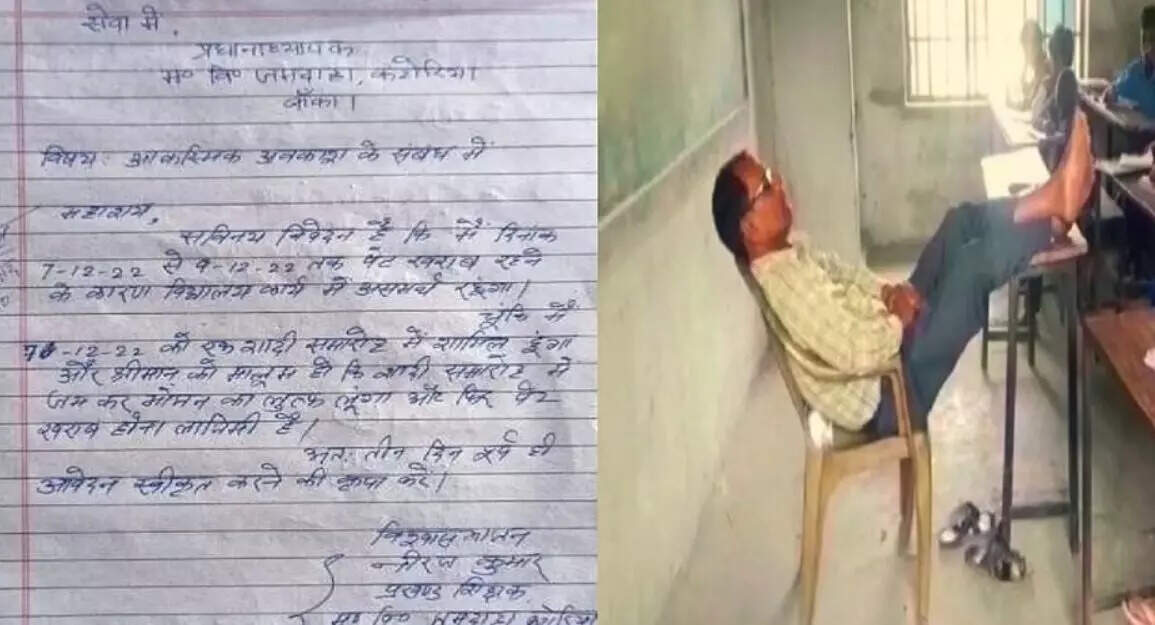 सेवा में,
प्रधानाध्यापक
म० वि० जमदाहा, कटोरिया
बाँका।
विषय: आकस्मिक अवकाश के संबंध में
महाशय,
सविनय निवेदन है कि मैं दिनांक
7-12-22 से 9-12-22 तक पेट खराब रहने
के कारण विद्यालय कार्य में असमर्थ रहूंगा।
चूंकि मैं
-12-22 को एक शादी समारोह में शामिल हूंगा
और श्रीमान् को मालूम हो कि शादी समारोह मे
जम कर भोजन का लुत्फ लूंगा और फिर पेट
खराब होना लाजिमी है।
अत: तीन दिन पूर्व ही
आवेदन स्वीकृत करने की कृपा करें।
विश्वास भाजन
नीरज कुमार
प्रखण्ड शिक्षक
म० वि० जमदाहा कटोरिया